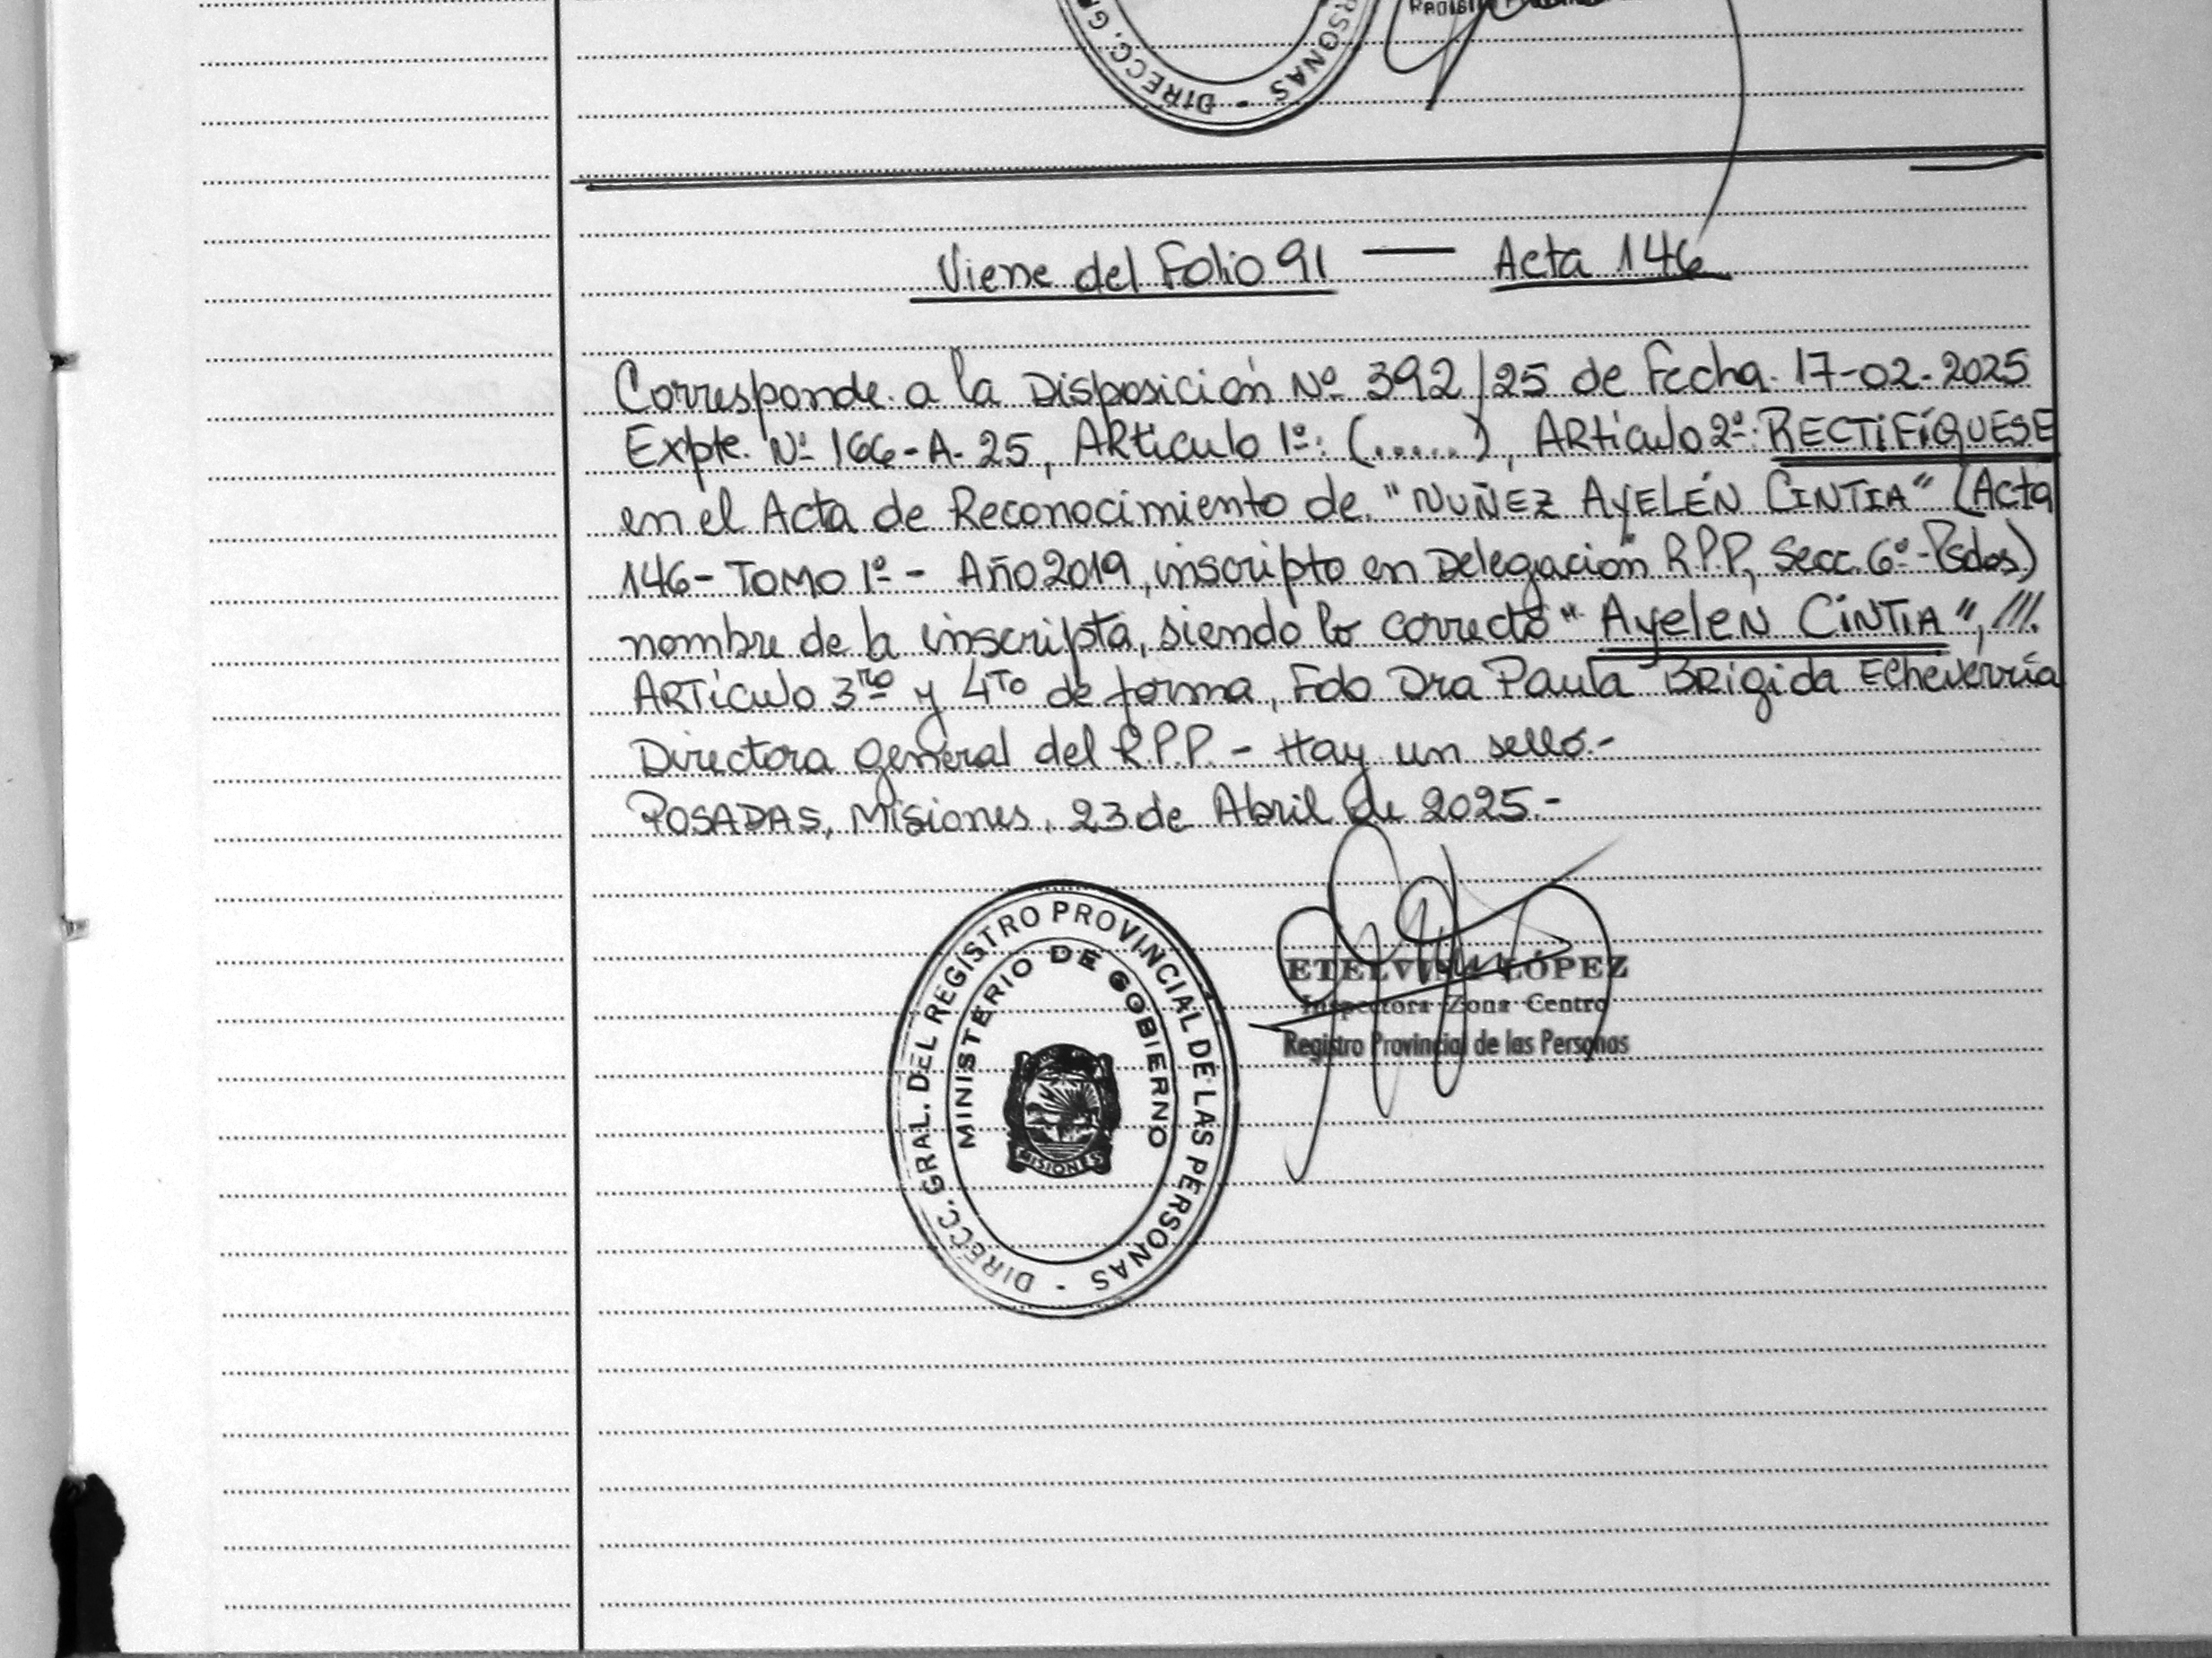 DIRECC. G
RSONAS -
Viene del Folio 91 — Acta 146
Corresponde a la Disposición Nº 392/25 de Fecha 17-02-2025
Expte. Nº 166-A-25, ARtículo 1º: (.....), ARtículo 2º: RECTIFÍQUESE
en el Acta de Reconocimiento de "NUÑEZ AYELÉN CINTIA" (Acta
146- TOMO 1º - Año 2019, inscripto en Delegación R.P.P, Secc. 6º - Psdas)
nombre de la inscripta, siendo lo correcto "Ayelen CINTIA", ///.
ARTículo 3ro y 4to de forma, Fdo Dra Paula BRigida Echeverría
Directora general del R.P.P. - Hay un sello.-
POSADAS, Misiones, 23 de Abril de 2025.-
DIRECC. GRAL. DEL REGISTRO PROVINCIAL DE LAS PERSONAS -
MINISTERIO DE GOBIERNO
MISIONES
ETELVINA LÓPEZ
Inspectora Zona Centro
Registro Provincial de las Personas